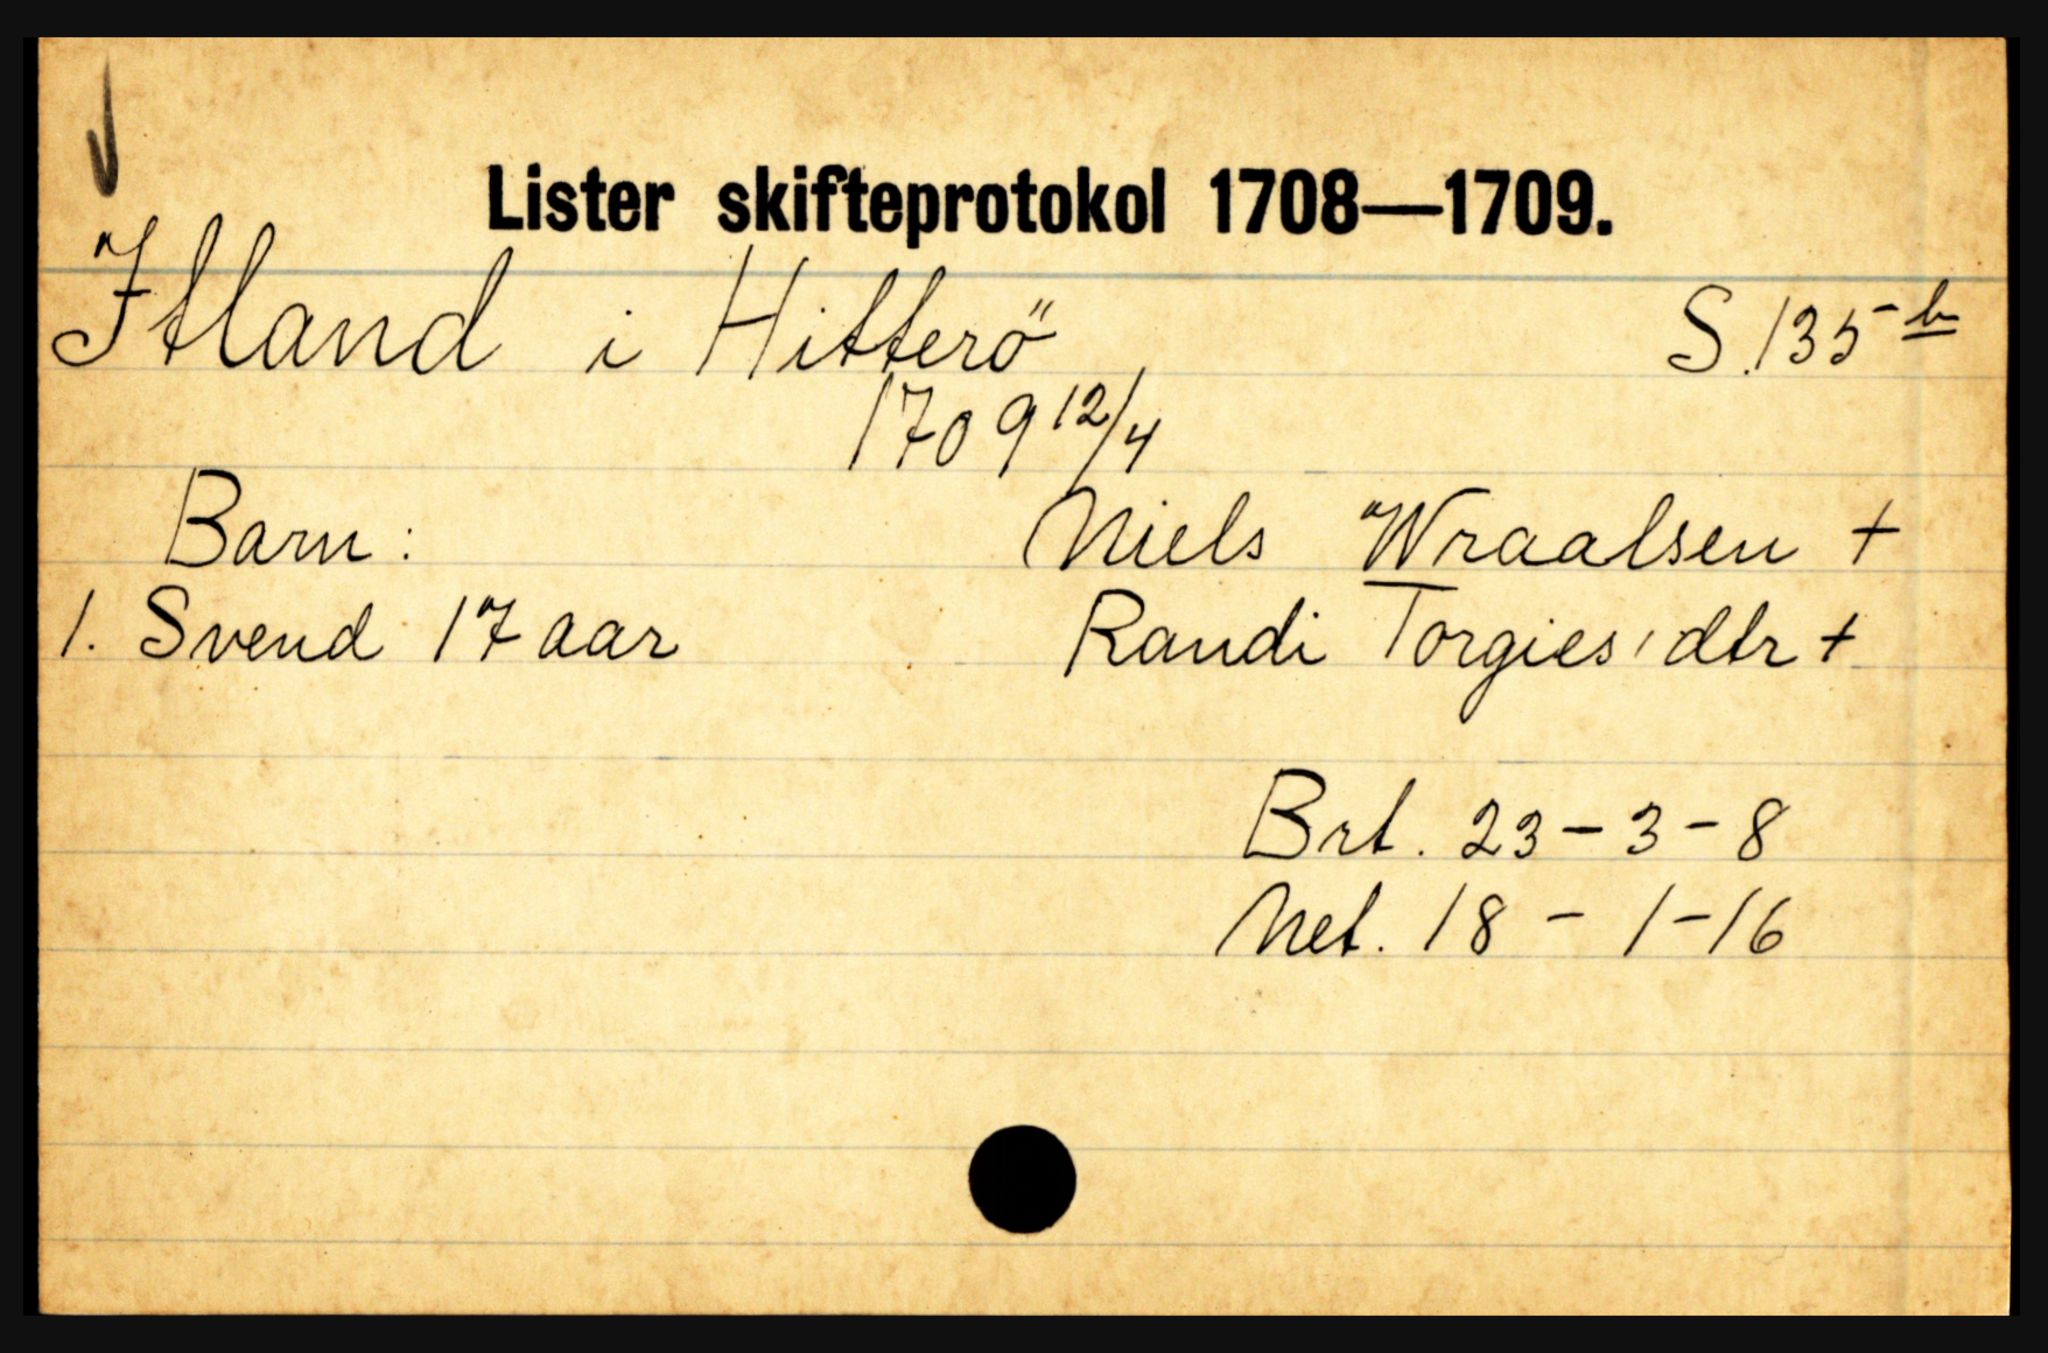 Lister skifteprotokol 1708—1709.
Itland i Hitterö S. 135 b
1709 12/4
Barn: Niels Wraalsen +
1. Svend 17 aar Randi Torgiesdtr +
Brt. 23 - 3 - 8
Net. 18 - 1 - 16